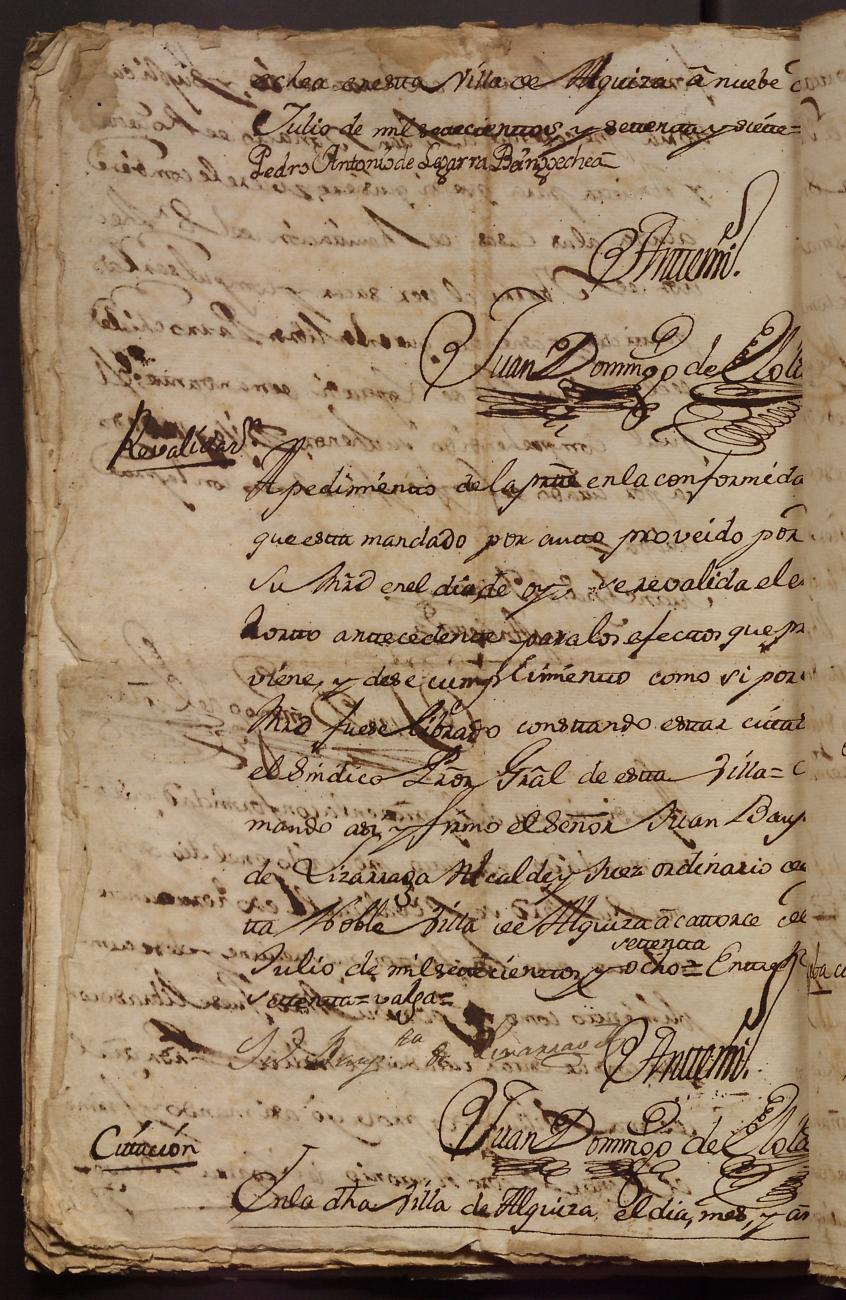 echea en esta Villa de Alquiza à nuebe
Julio de mil settecienttos y settenta y siette=
Pedro Antonio de Legarra Bengoechea
Anttemi.
Juan Domingo de
Revalidaz.n
A pedimiento de la prte en la conformida
que esta mandado por autto proveido por
su Mrd en el dia de oy se revalida el e
horto anttecedente para los efectos que pr
viene, y dese cumplimiento como si por
Mrd fuese librado consttando esttar cittad
el Sindico Pror Gral de esta Villa=
mando asi, y firmo el Señor Juan Baup
de Lizarraga Alcalde y Juez ordinario de
ta Noble Villa de Alquiza à cattorce de
settenta
Julio de mil settecienttos y ocho= Entre R
settenta= valga=
Juan Baup.ta de Lizarraga
Anttemi.
Juan Domingo de
Cittación
En la dha Villa de Alquiza, el dia, mes, y añ